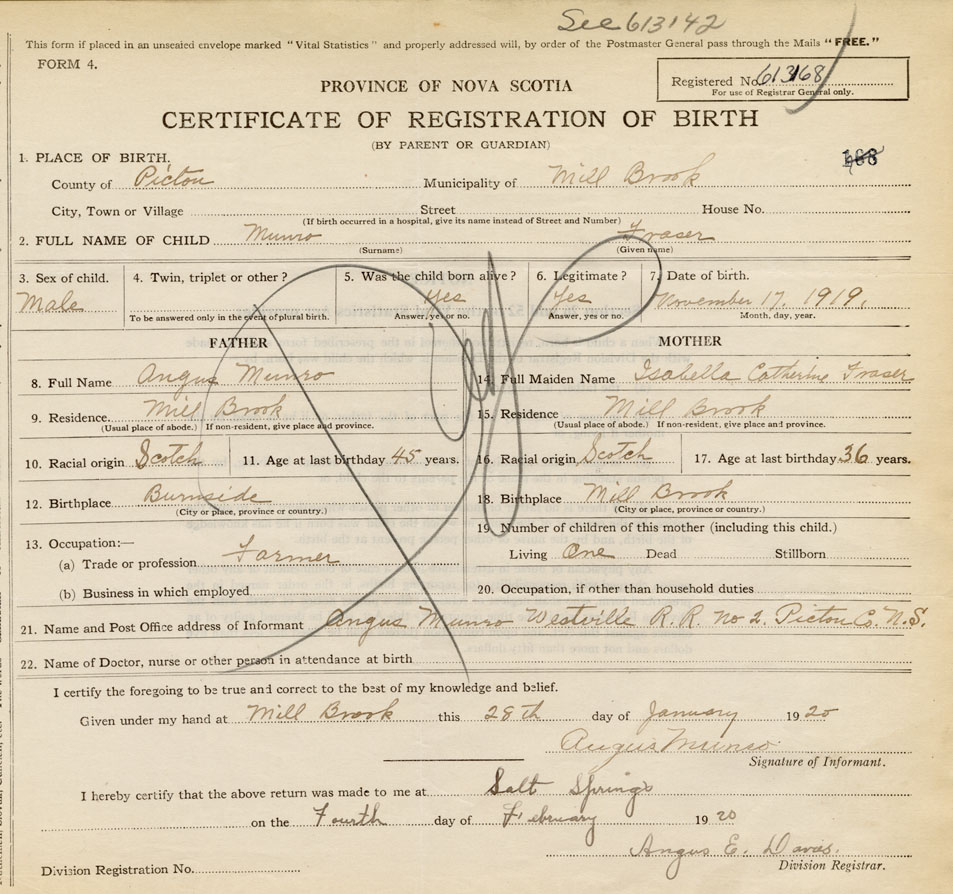 See 613142
This form if placed in an unsealed envelope marked "Vital Statistics" and properly addressed will, by order of the Postmaster General pass through the Mails "FREE."
FORM 4.
Registered No. 613168
For use of Registrar General only.
PROVINCE OF NOVA SCOTIA
CERTIFICATE OF REGISTRATION OF BIRTH
(BY PARENT OR GUARDIAN)
168
1. PLACE OF BIRTH.
County of Pictou Municipality of Mill Brook
City, Town or Village Street House No.
(If birth occurred in a hospital, give its name instead of Street and Number)
2. FULL NAME OF CHILD Munro Fraser
(Surname) (Given name)
3. Sex of child. 4. Twin, triplet or other? 5. Was the child born alive? 6. Legitimate? 7. Date of birth.
Male Yes Yes November 17, 1919.
To be answered only in the event of plural birth. Answer, yes or no. Answer, yes or no. Month, day, year.
FATHER MOTHER
8. Full Name Angus Munro 14. Full Maiden Name Isabella Catherine Fraser
9. Residence. Mill Brook 15. Residence Mill Brook
(Usual place of abode.) If non-resident, give place and province. (Usual place of abode.) If non-resident, give place and province.
10. Racial origin Scotch 11. Age at last birthday 45 years. 16. Racial origin Scotch 17. Age at last birthday 36 years.
12. Birthplace Burnside 18. Birthplace Mill Brook
(City or place, province or country.) (City or place, province or country.)
13. Occupation:— 19. Number of children of this mother (including this child.)
(a) Trade or profession Farmer Living One Dead Stillborn
(b) Business in which employed 20. Occupation, if other than household duties
21. Name and Post Office address of Informant Angus Munro Westville R. R. No 2. Pictou Co. N.S.
22. Name of Doctor, nurse or other person in attendance at birth
I certify the foregoing to be true and correct to the best of my knowledge and belief.
Given under my hand at Mill Brook this 28th day of January 1920
Angus Munro
Signature of Informant.
I hereby certify that the above return was made to me at Salt Springs
on the Fourth day of February 1920
Angus E.
Division Registration No. Division Registrar.